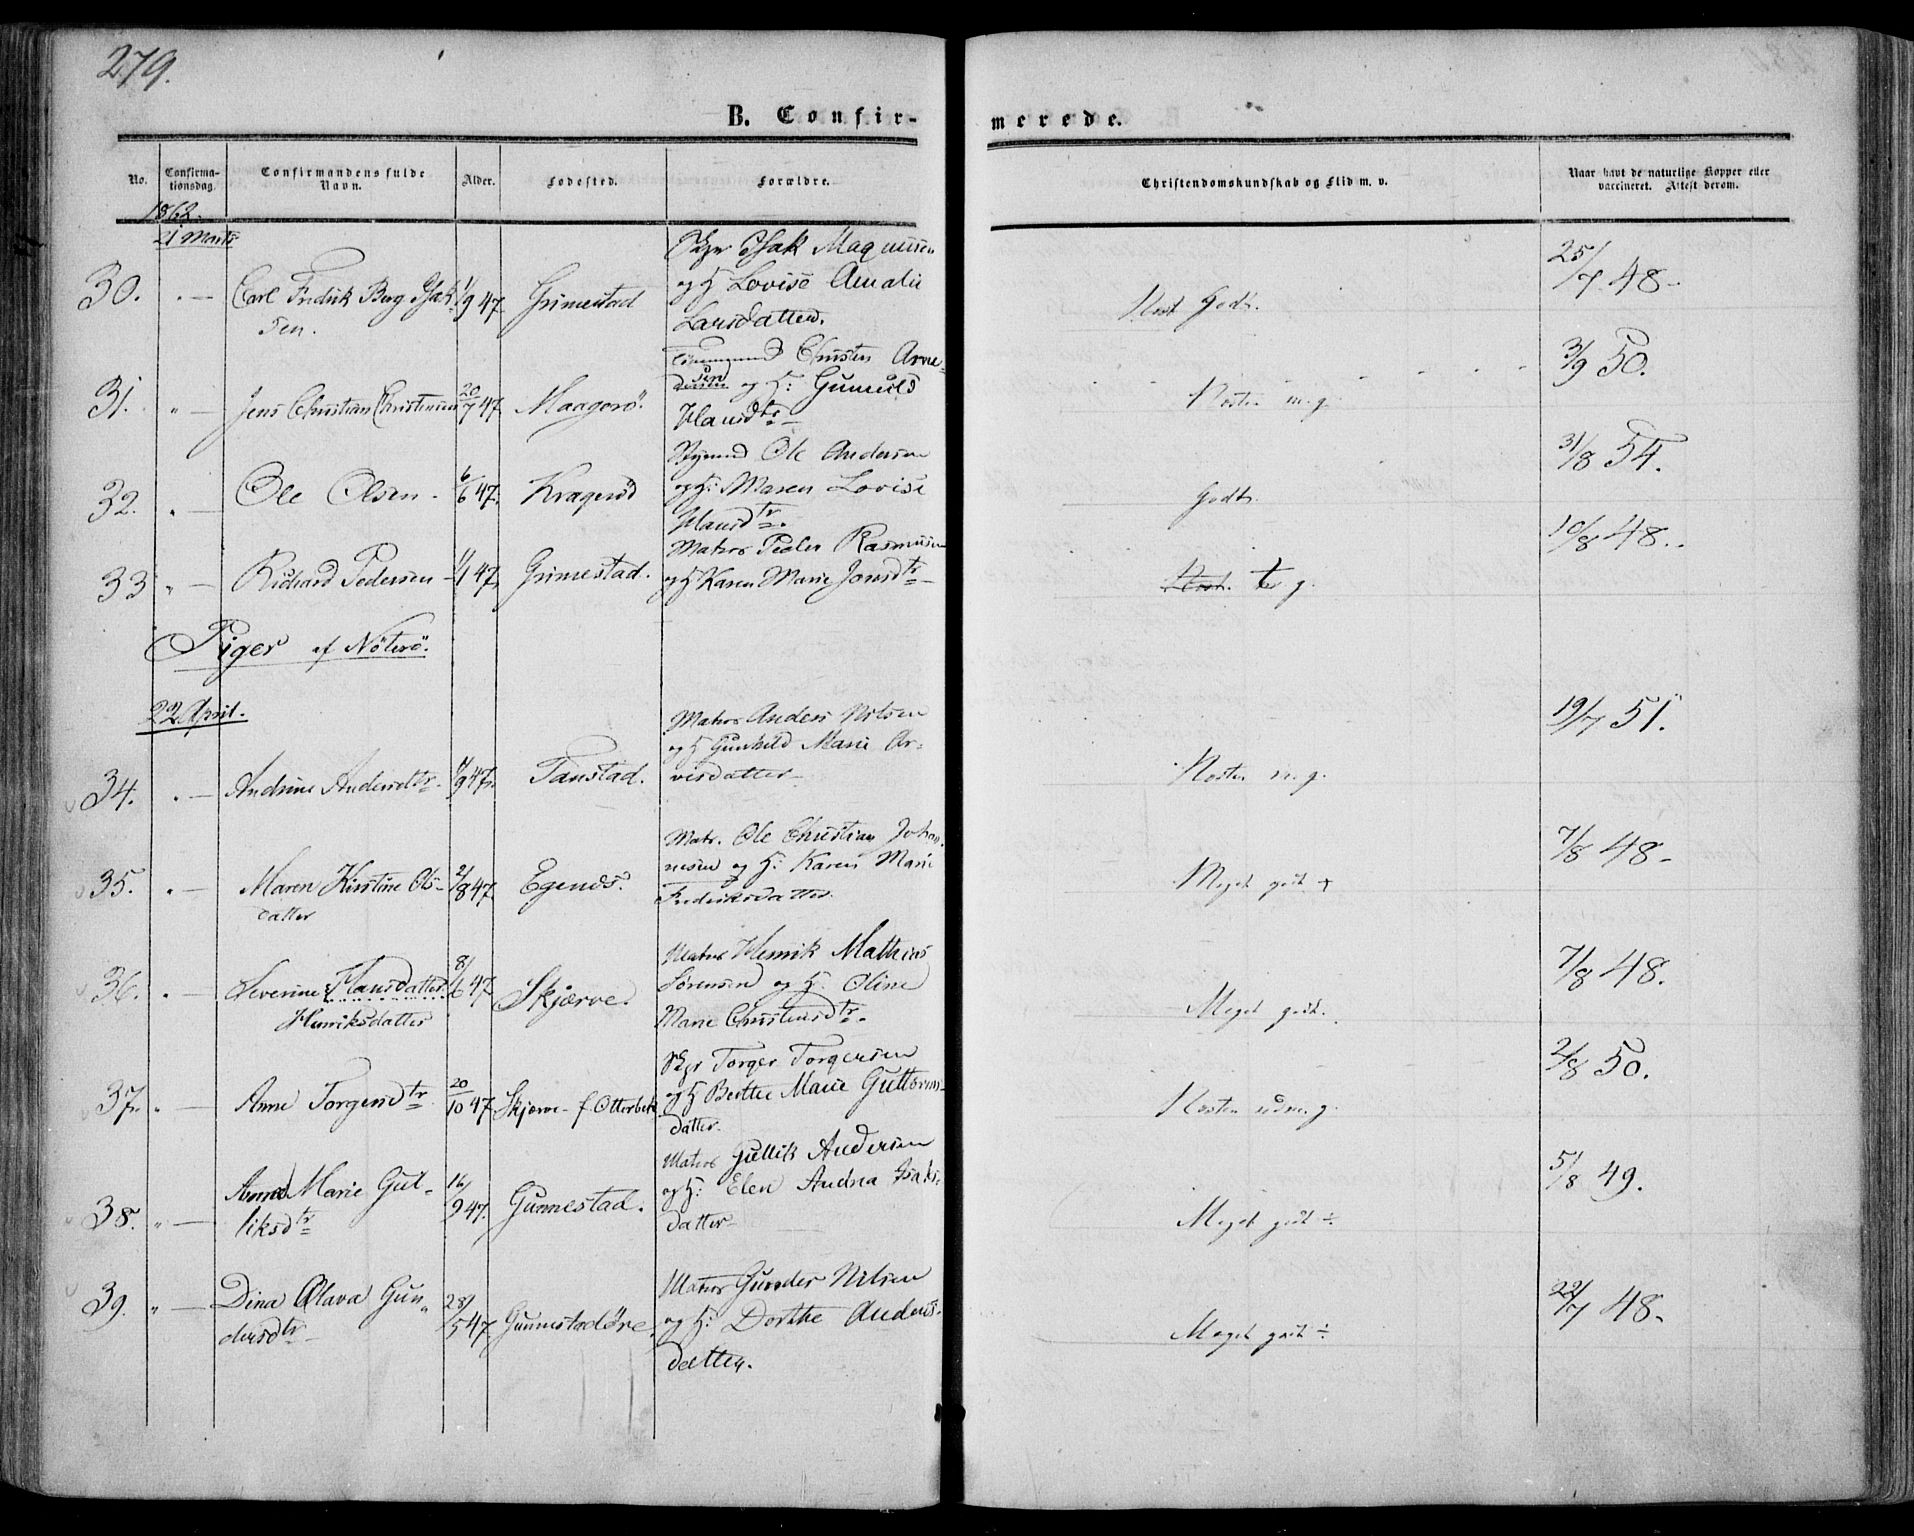 279.
B. Confir-
merede.
No.
Confirma-
tionsdag.
Confirmandens fulde
Navn.
Alder.
Fødested.
Forældre.
Christendomskundskab og Flid m. v.
Naar havt de naturlige Kopper eller
vaccineret. Attest derom.
1862.
21 Marts
30. " — Carl Fredrik Berg Isak-
sen.
1/9 47. Grimestad
Isak Magnussen
og H Lovise Amalie
Larsdatter.
Godt.
25/7 48-
31. " — Jens Christian Christensen 20/7 47. Maagerö.
Christen Arne-
sen og H: Gunnild
Hansdtr-
Næsten m. g.
3/9 50.
32. " — Ole Olsen. 6/6 47.
Ole Andersen
og H: Maren Lovise
Hansdtr.
Godt.
31/8 54.
33 " — Richard Pedersen - 11/1 47. Grimestad.
Matros Peder Rasmussen
og H Karen Marie Jonsdtr-
t g.
10/8 48.
Piger af Nöterö.
22 April.
34. " — Andrine Andersdtr. 47.
Matros Anders Nilsen
og H Gunhild Marie Or-
visdatter-
Næsten m. g.
19/7 51.
35. " — Maren Kirstine Ols-
datter
2/8 47. Egenes.
Matr. Ole Christian Johan-
nesen og H: Karen Marie
Fredriksdatter.
Meget godt +
7/8 48-
36. " — Severine Hansdatter
Henriksdatter
8/6 47 Skjærve.
Matros Henrik Mathias
Sörensen og H: Oline
Marie Christensdtr.
Meget godt.
7/8 48.
37. " — Anne Torgersdtr 20/10 47 Skjærve - f Otterbek
Torger Torgersen
og H Berthe Marie Guttorms-
datter.
Næsten udm. g.
2/8 50.
38. " — Anne Marie Gul-
liksdtr
16/9 47. Gunnestad.
Matros Gullik Andersen
og H: Elen Andrea Isaks-
datter-
Meget godt ÷
5/8 49.
39. " — Dina Olava Gun-
dersdtr
28/5 47 Gunnestadöre.
Matros Gunder Nilsen
og H: Dorthe Anders-
datter.
Meget godt ÷
22/7 48-